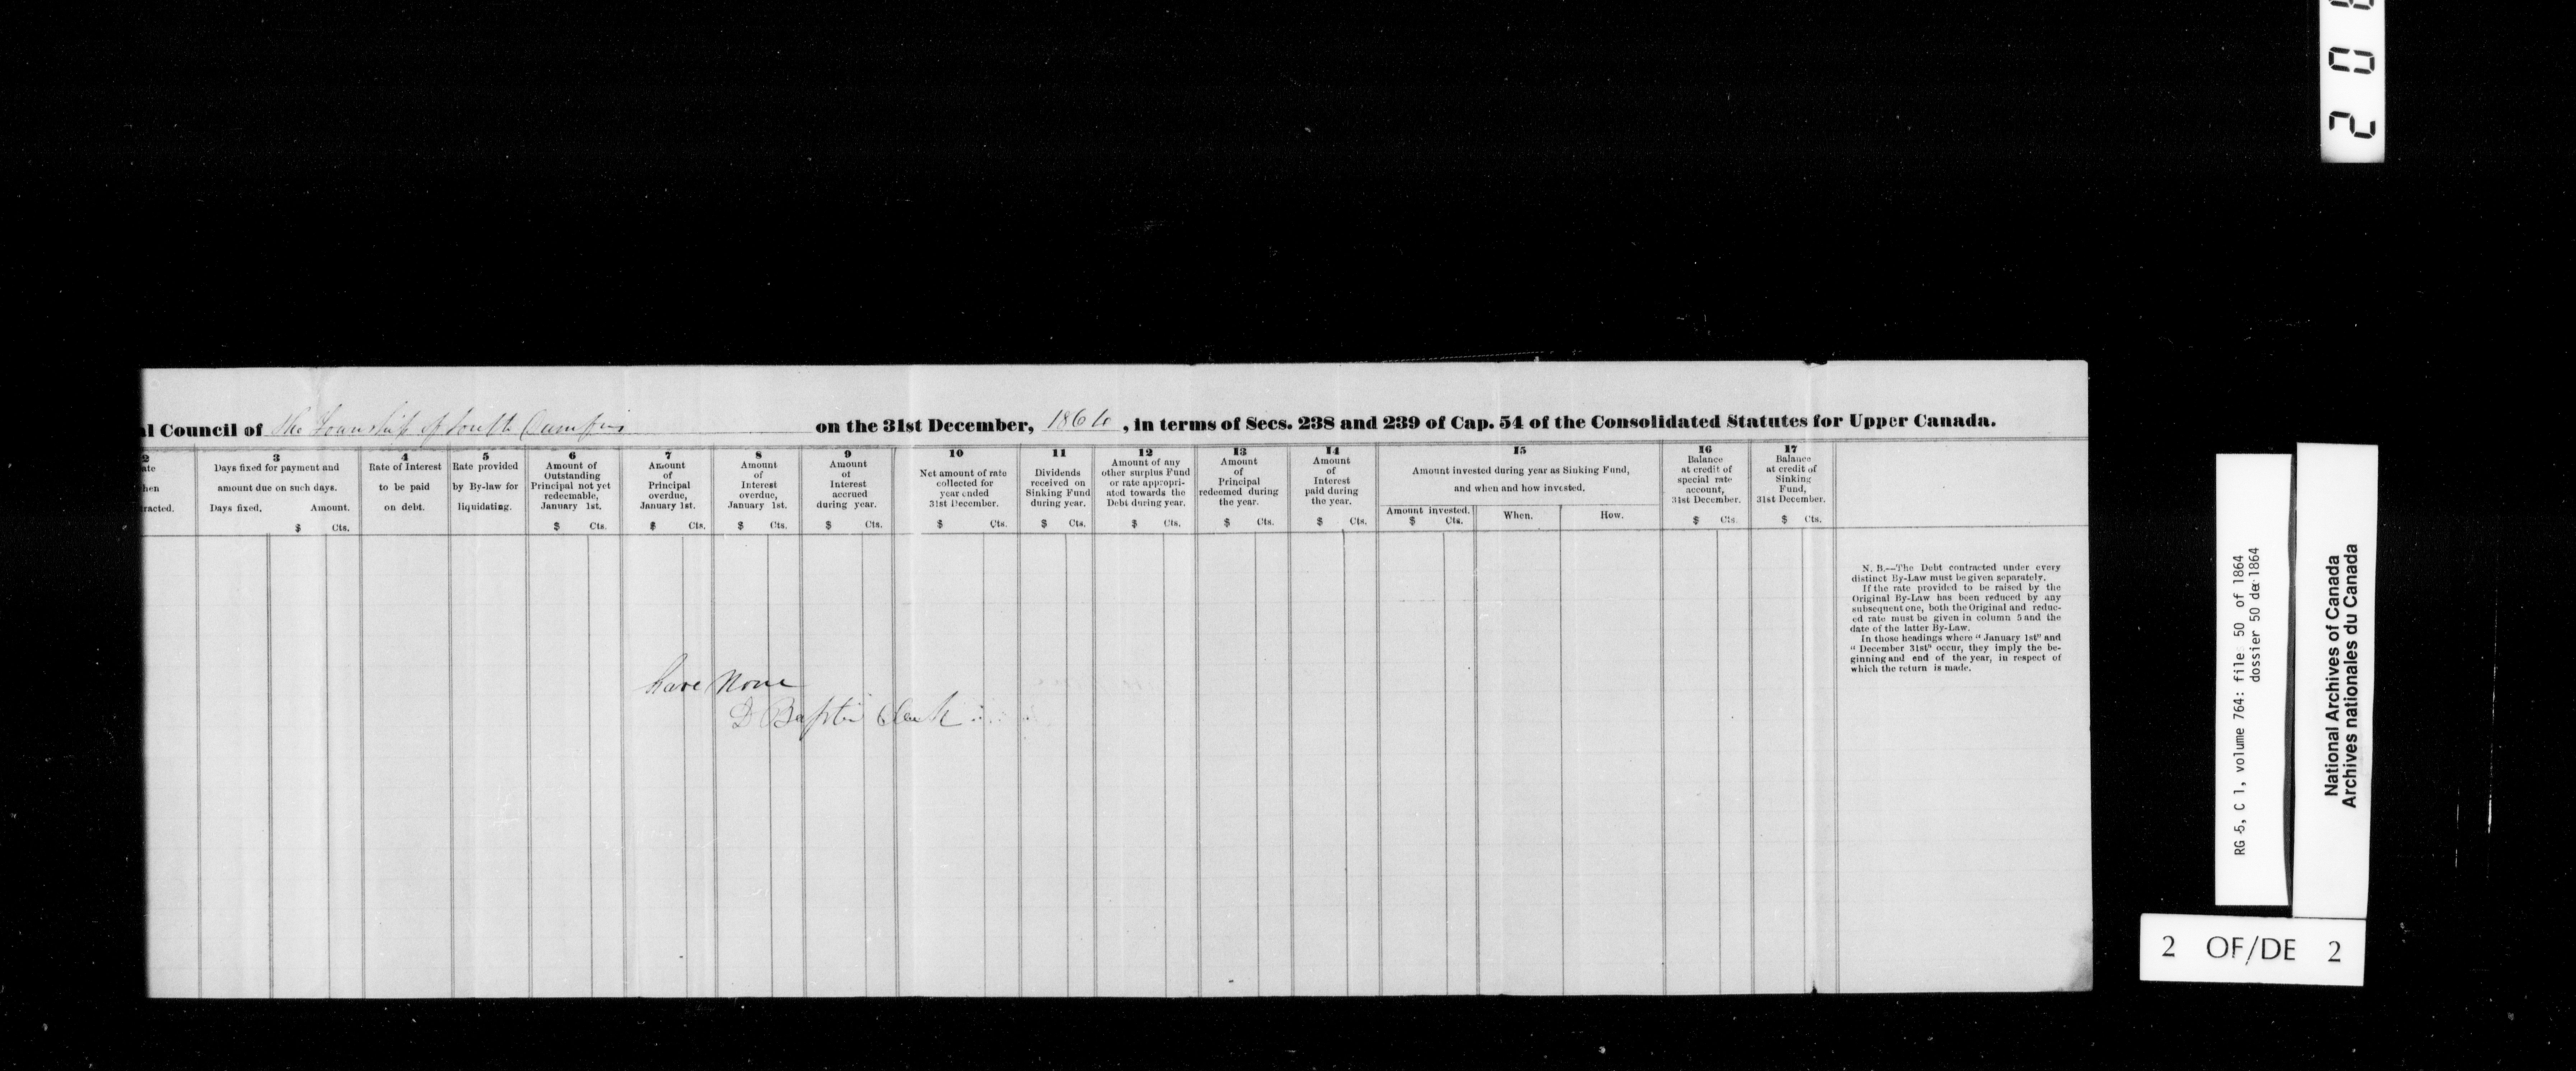 al Council of the Township of South Dumfries on the 31st December, 1864, in terms of Secs. 238 and 239 of Cap. 54 of the Consolidated Statutes for Upper Canada.
2
ate
hen
tracted.
3
Days fixed for payment and
amount due on such days.
Days fixed. Amount.
$ Cts.
4
Rate of Interest
to be paid
on debt.
5
Rate provided
by By-law for
liquidating.
6
Amount of
Outstanding
Principal not yet
redeemable,
January 1st.
$ Cts.
7
Amount
of
Principal
overdue,
January 1st.
$ Cts.
8
Amount
of
Interest
overdue,
January 1st.
$ Cts.
9
Amount
of
Interest
accrued
during year.
$ Cts.
10
Net amount of rate
collected for
year ended
31st December.
$ Cts.
11
Dividends
received on
Sinking Fund
during year.
$ Cts.
12
Amount of any
other surplus Fund
or rate appropri-
ated towards the
Debt during year.
$ Cts.
13
Amount
of
Principal
redeemed during
the year.
$ Cts.
14
Amount
of
Interest
paid during
the year.
$ Cts.
15
Amount invested during year as Sinking Fund,
and when and how invested.
Amount invested. When. How.
$ Cts.
16
Balance
at credit of
special rate
account,
31st December.
$ Cts.
17
Balance
at credit of
Sinking
Fund,
31st December.
$ Cts.
N. B.—The Debt contracted under every
distinct By-Law must be given separately.
If the rate provided to be raised by the
Original By-Law has been reduced by any
subsequent one, both the Original and reduc-
ed rate must be given in column 5 and the
date of the latter By-Law.
In those headings where "January 1st" and
"December 31st" occur, they imply the be-
ginning and end of the year, in respect of
which the return is made.
have None
D Baptie Clerk
RG 5, C 1, volume 764: file 50 of 1864
dossier 50 de 1864
National Archives of Canada
Archives nationales du Canada
2 OF/DE 2
2 0